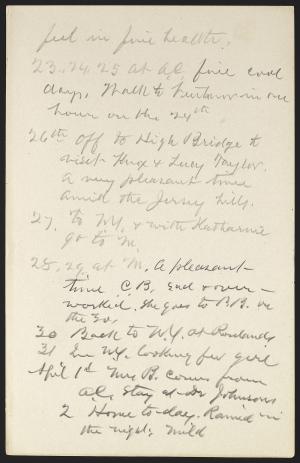 feel in fine health.
23, 24, 25 at A.C. fine cool
days, Walk to Ventnor in one
hour on the 24th
26th Off to High Bridge to
visit & Lucy Taylor.
A very pleasant time
amid the Jersey hills.
27, to N.Y. & with Katharine
go to M.
28, 29, at M. A pleasant
time C.B. and over-
worked. She goes to B.B. on
the 30.
30 Back to N.Y. at Rowlands
31 In N.Y. looking for girl
April 1st Mrs B. comes from
A.C. Stay at Dr Johnsons
2 Home to-day. Rained in
the night; mild